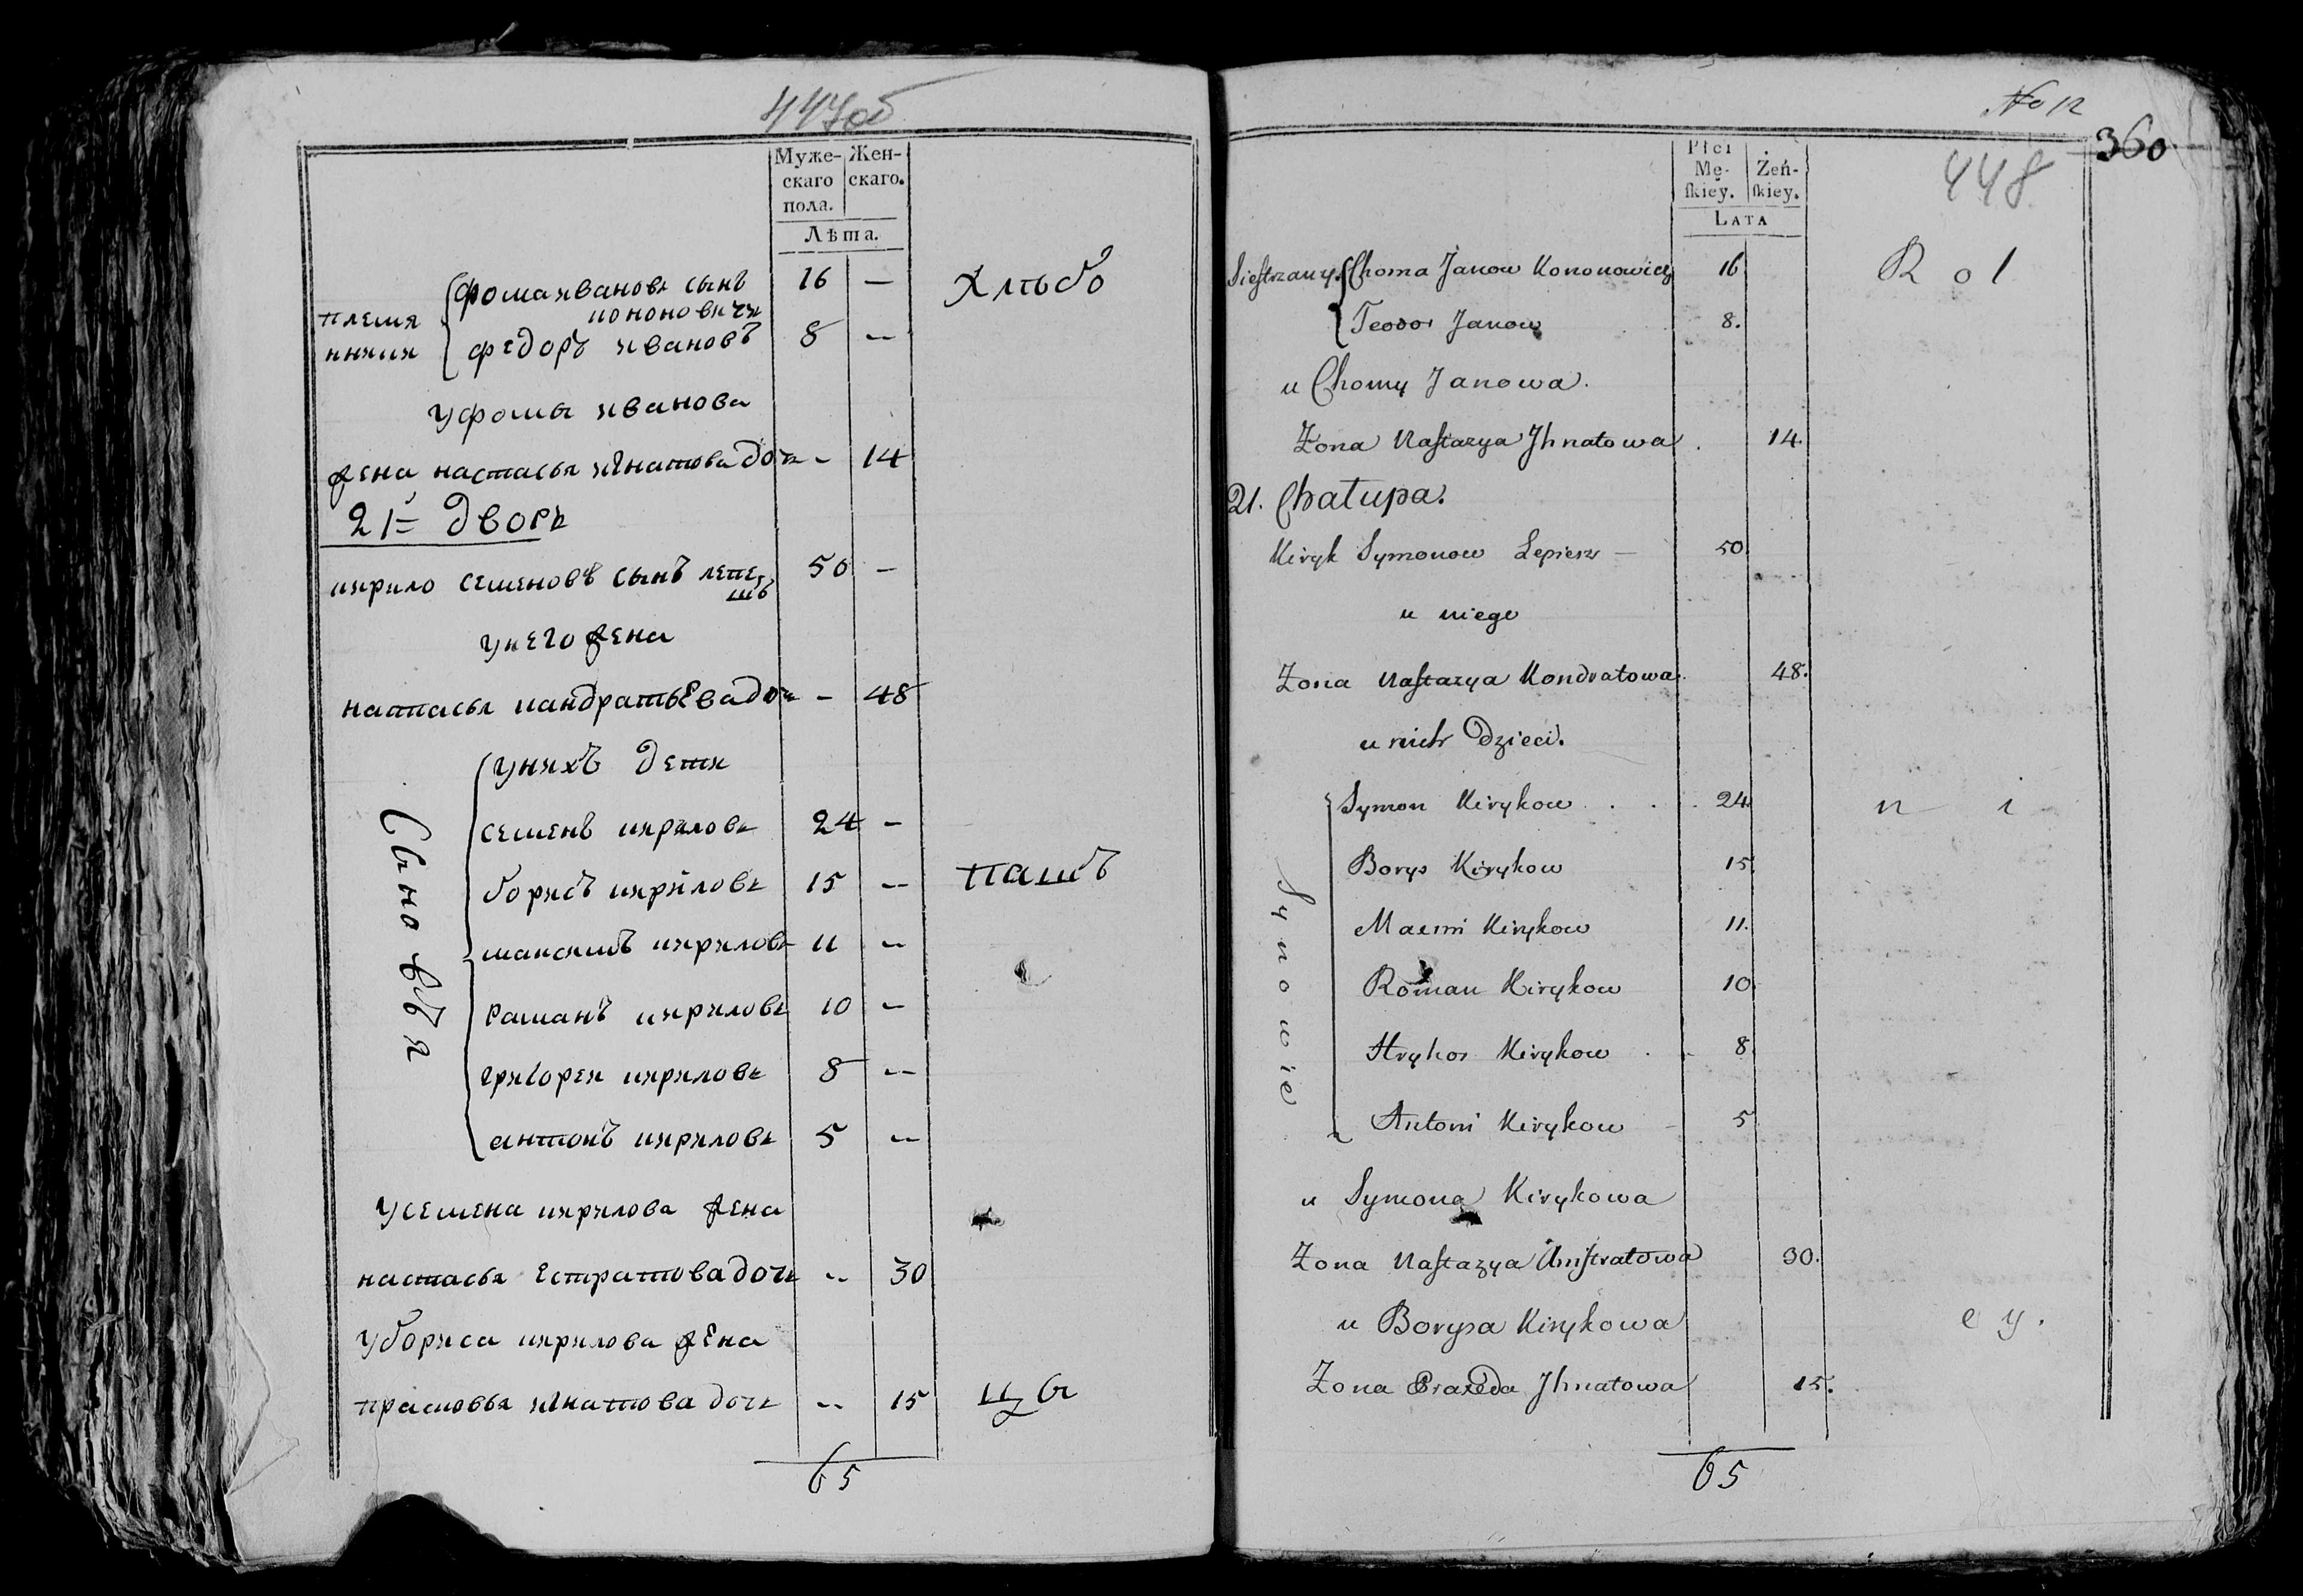 447об
Муже-
скаго
пола.
Жен-
скаго.
Лѣта.
племя
нники
фома ивановъ сынъ 16 —
кононовичъ
федоръ ивановъ 8 —
хлѣбо
у фомы иванова
жена настасья игнатова дочь — 14
21 = дворъ
кирило семеновъ сынъ лепе 50 —
шъ
у него жена
настасья кандратьева дочь — 48
у нихъ дети
Сыновъя
семенъ кириловъ 24 —
борисъ кириловъ 15 —
паш
максимъ кириловъ 11 —
раманъ кириловъ 10 —
григореи кириловъ 8 —
антонъ кириловъ 5 —
у семена кирилова жена
настасья естратова дочь — 30
у бориса кирилова жена
прасковья игнатова дочь — 15
цы
65
No 12
360
448
Płci
Mę-
ſkiéy.
Żeń-
ſkiey.
LATA
Siestrzancy Choma Janow Kononowicz 16
R o l
Teodor Janow 8.
u Chomy Janowa.
Żona Nastazya Jhnatowa 14.
21. Chałupa.
Kiryk Symonow Lepiesz — 50
u niego
Żona Nastazya Kondratowa 48.
u nich Dzieci.
Synowie
Symon Kirykow 24
n i
Borys Kirykow 15
Maxim Kirykow 11.
Roman Kirykow 10
Hryhor Kirykow 8
Antoni Kirykow 5
u Symona Kirykowa
Żona Nastazya 30.
u Borysa Kirykowa
e y.
Żona Praxeda Jhnatowa 15.
65